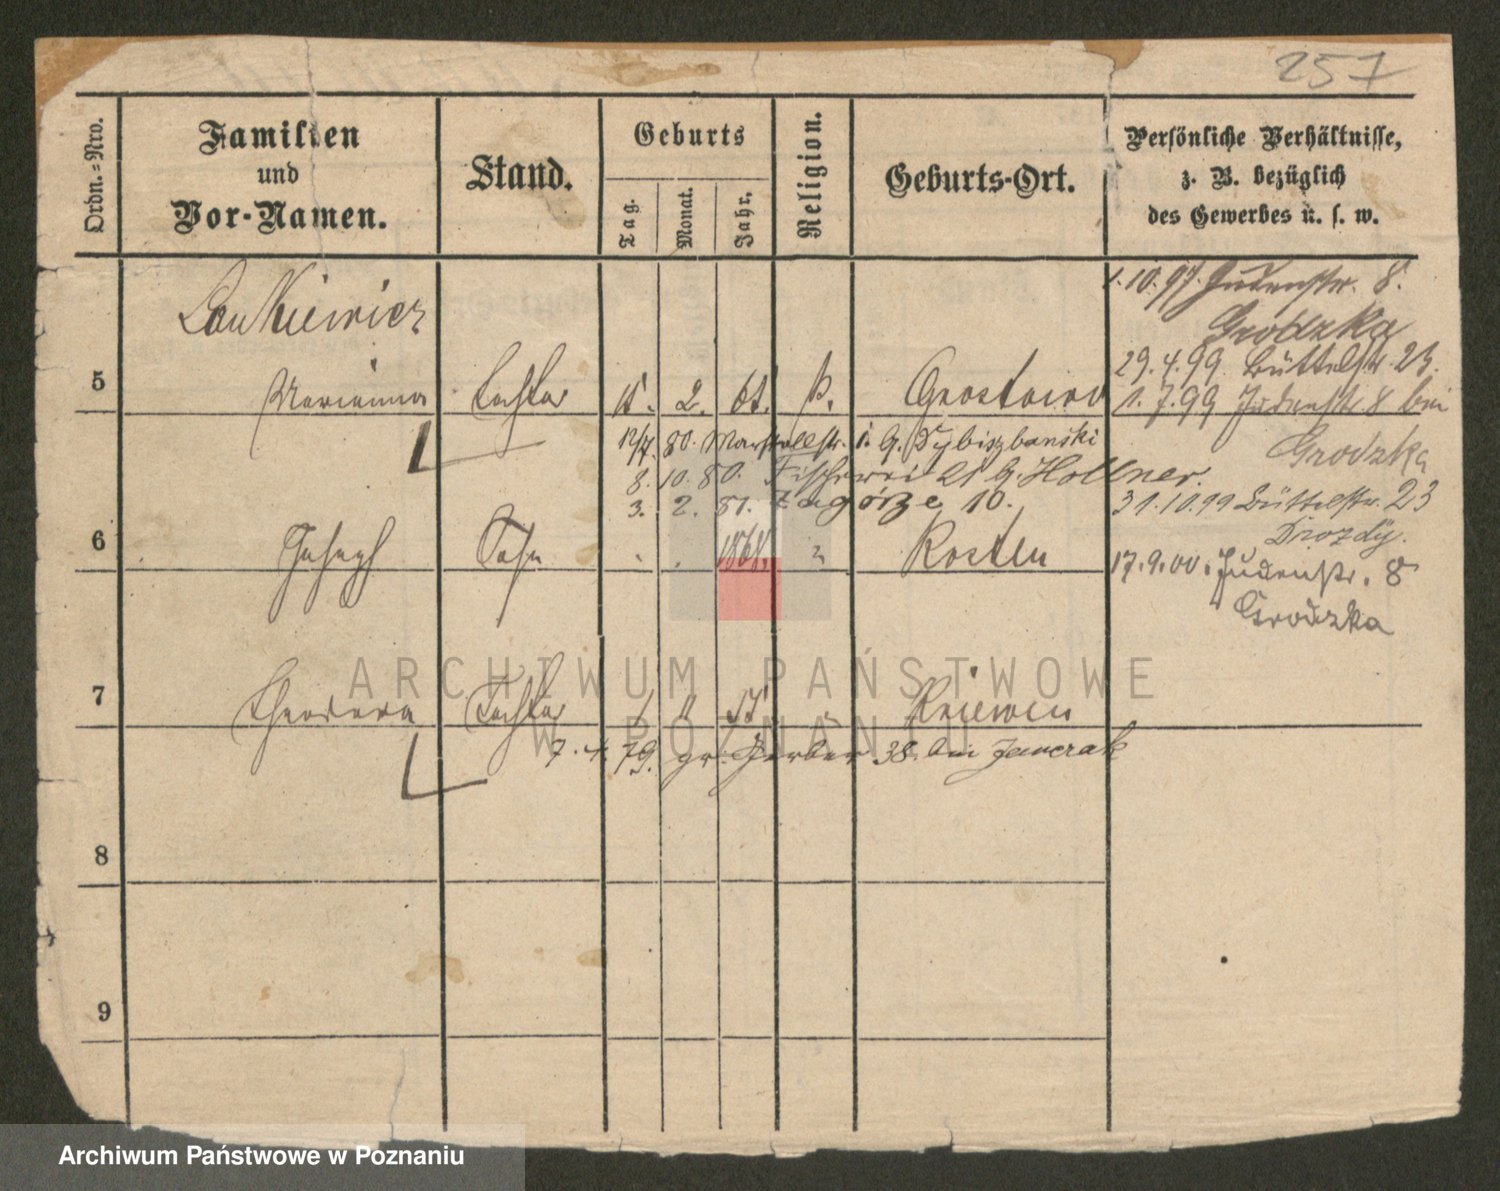 257
Ordn.-Nro.
Familien
und
Vor-Namen.
Stand.
Geburts
Tag.
Monat.
Jahr.
Religion.
Geburts-Ort.
Persönliche Verhältnisse,
z. B. bezüglich
des Gewerbes u. s. w.
1.10.97. Judenstr. 8.
Grodzka
29.4.99 Büttelstr. 23.
1.7.99 Judenstr 8 bei
Grodzka
31.10.99 Büttelstr. 23
Drozdy.
17.9.00. Judenstr. 8
Grodzka
5
Marianna Tochter 2.
12/7. 80. Marstallstr.
8. 10. 80. Fischerei 21 Hollner.
3. 2. 81. Zagórze 10.
6 Joseph Sohn 1868. Kosten
7 Theodora Tochter
7. 4. 79. gr. Gerber 38. bei Janczak
8
9
ARCHIWUM PAŃSTWOWE
W POZNANIU
Archiwum Państwowe w Poznaniu